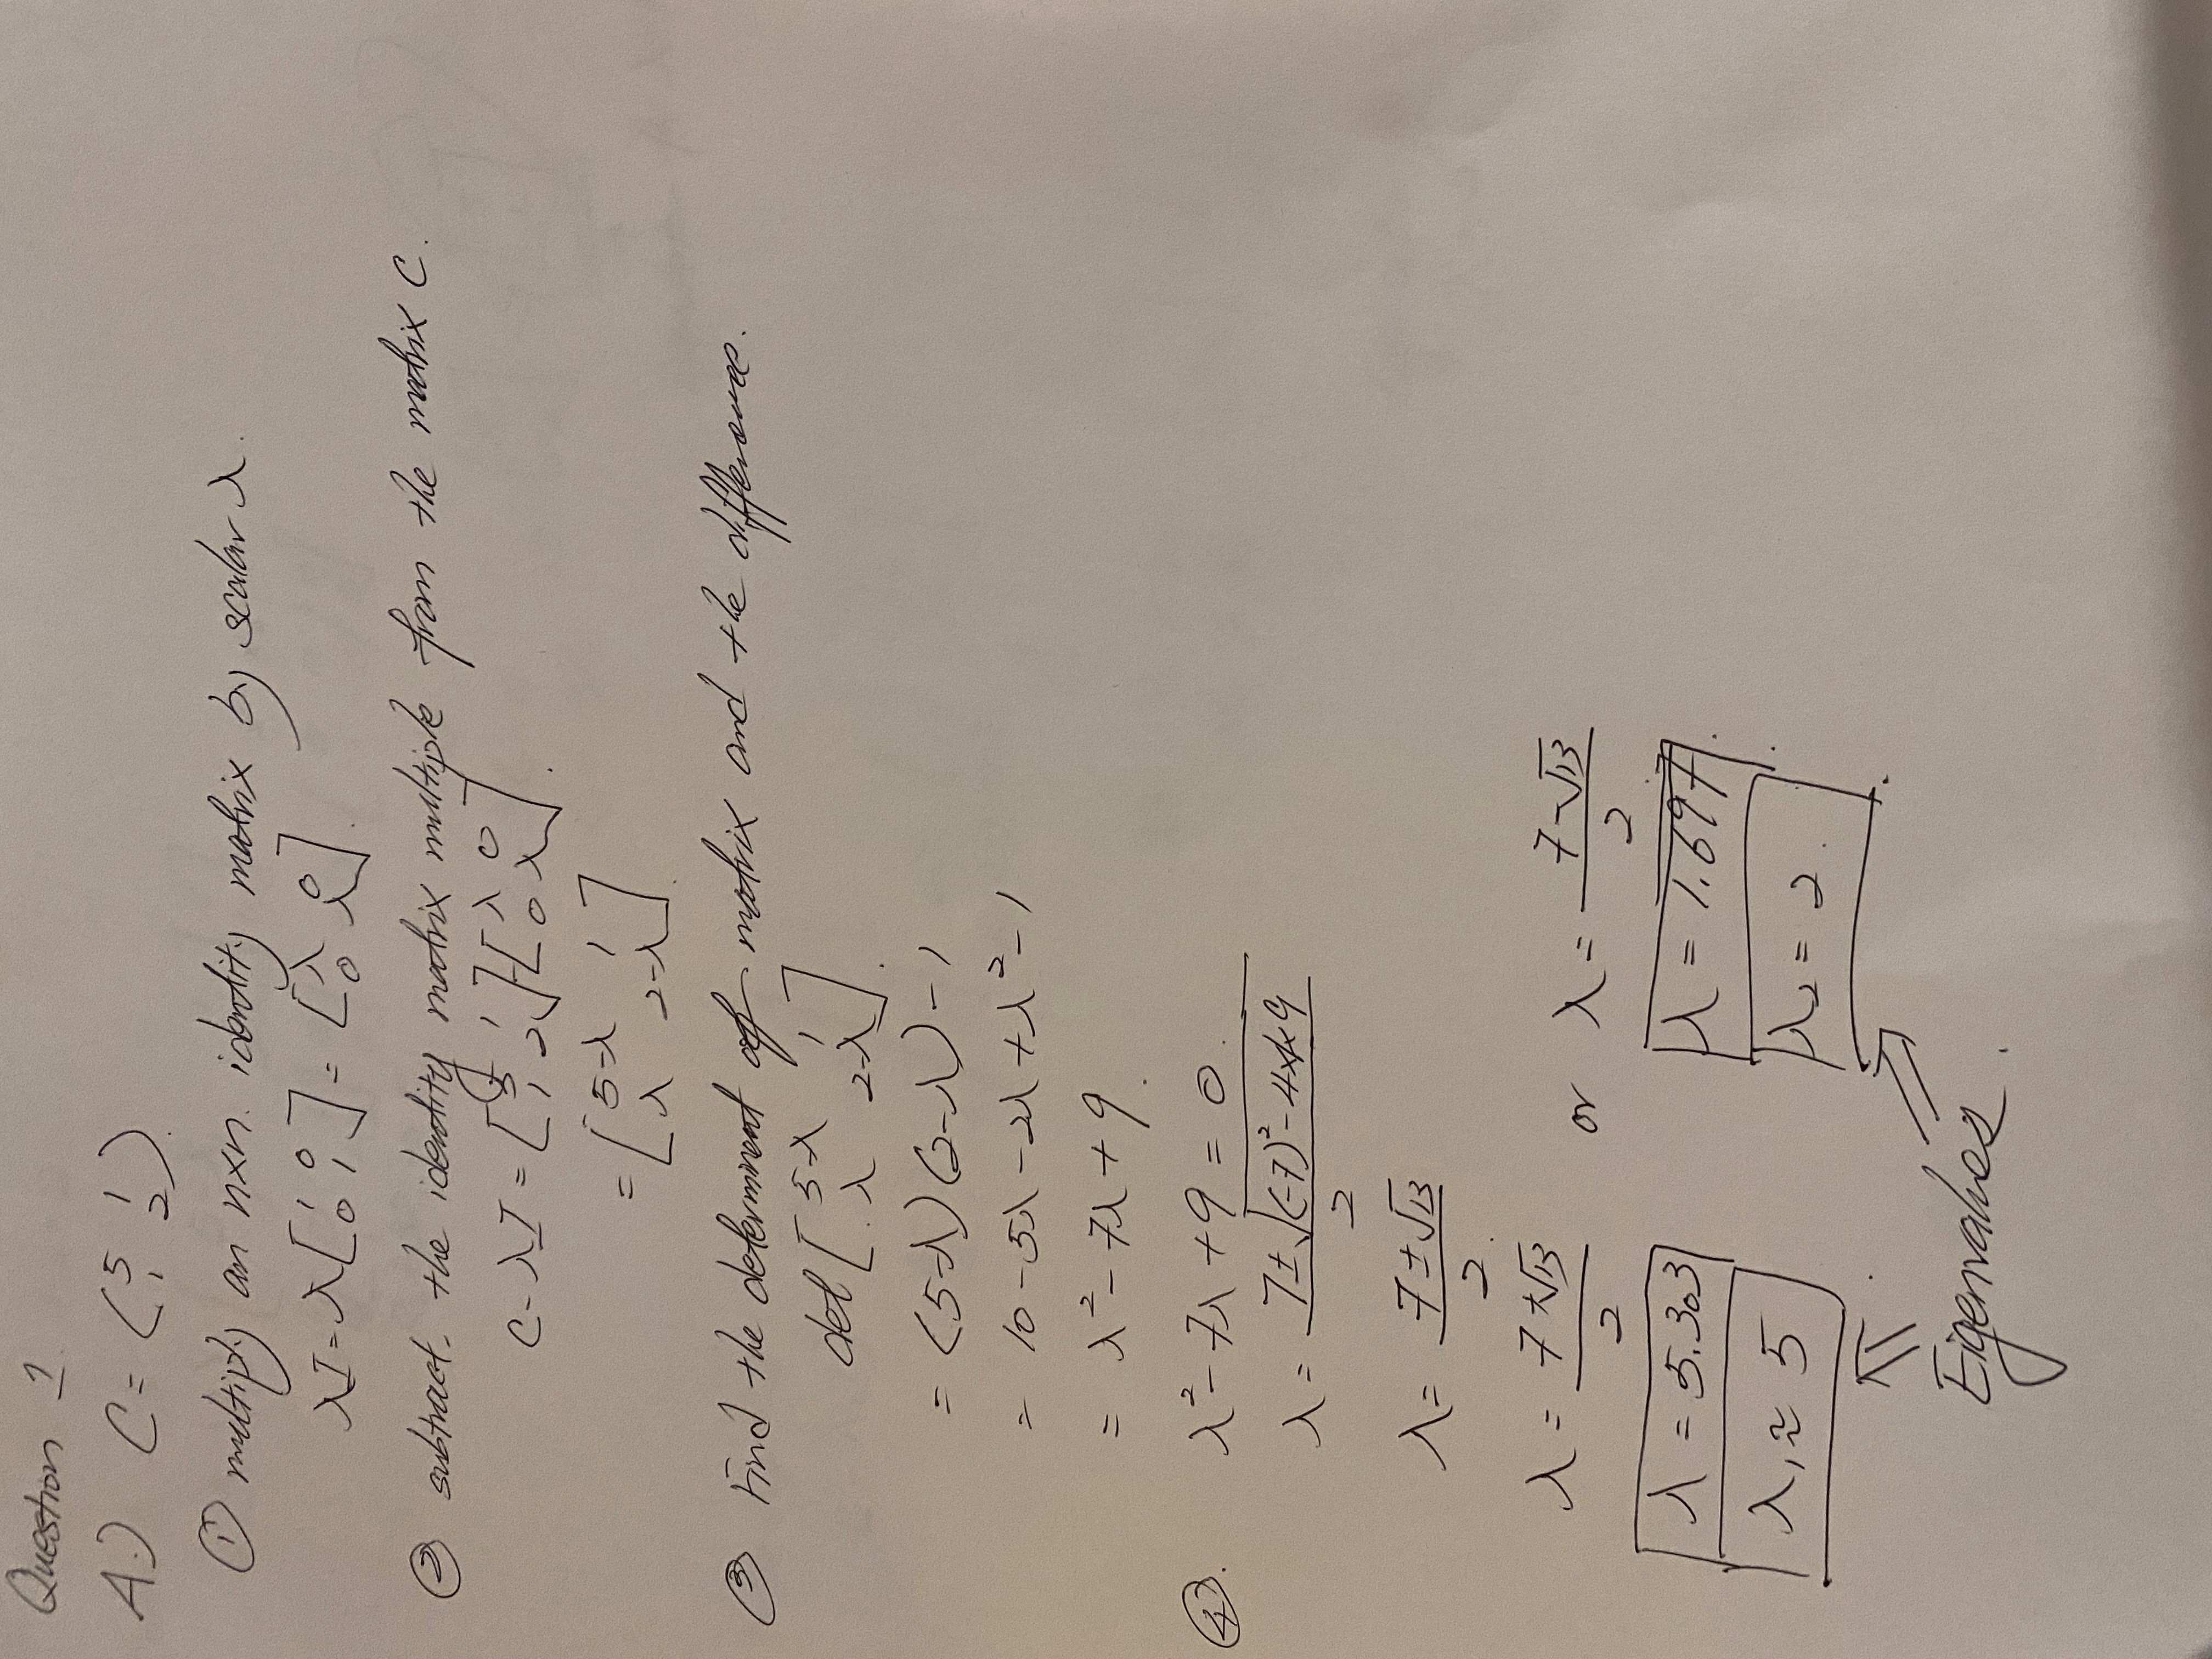 Question 1.
A.) C = (5 1
1 2).
① multiply an n×n. identity matrix by scalar λ.
λI = λ[1 0
0 1] = [λ 0
0 λ].
② subtract. the identity matrix multiple from the matrix C.
C - λI = [5 1
1 2] - [λ 0
0 λ].
= [5-λ 1
λ 2-λ].
③ Find the determinent of matrix and the difference.
det [5-λ 1
λ 2-λ].
= (5-λ)(2-λ) - 1
= 10 - 5λ - 2λ + λ² - 1
= λ² - 7λ + 9.
④. λ² - 7λ + 9 = 0.
λ = 7 ± √(-7)² - 4×1×9
2
λ = 7 ± √13
2.
λ = 7 + √13 or λ = 7 - √13
2 2.
λ = 5.303 λ = 1.697.
λ₁ ≈ 5 λ₂ = 2.
Eigenvalues.